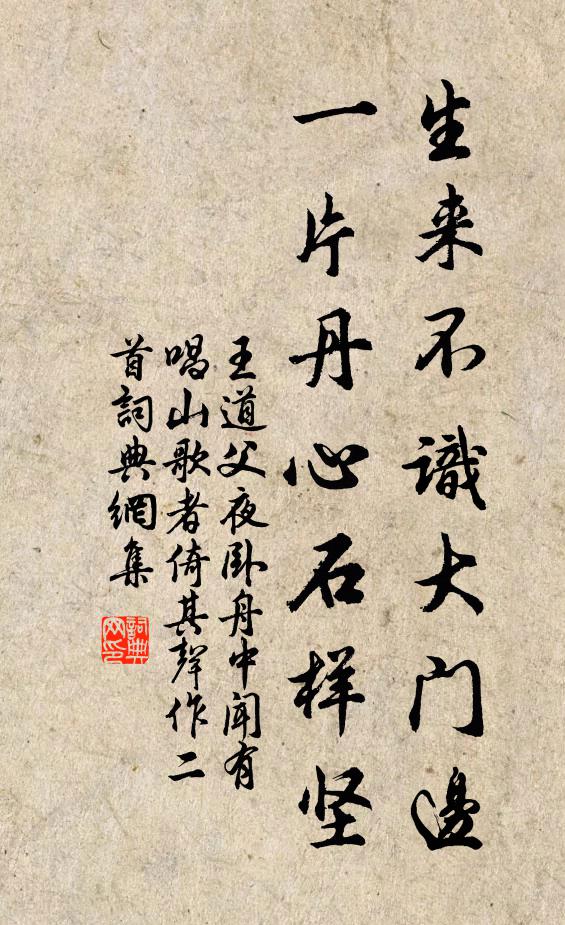 生来不識大門邊
一片丹心石样坚
王道父夜卧舟中聞有
唱山歌者倚其聲作二
首詞典網集
詞典
网印